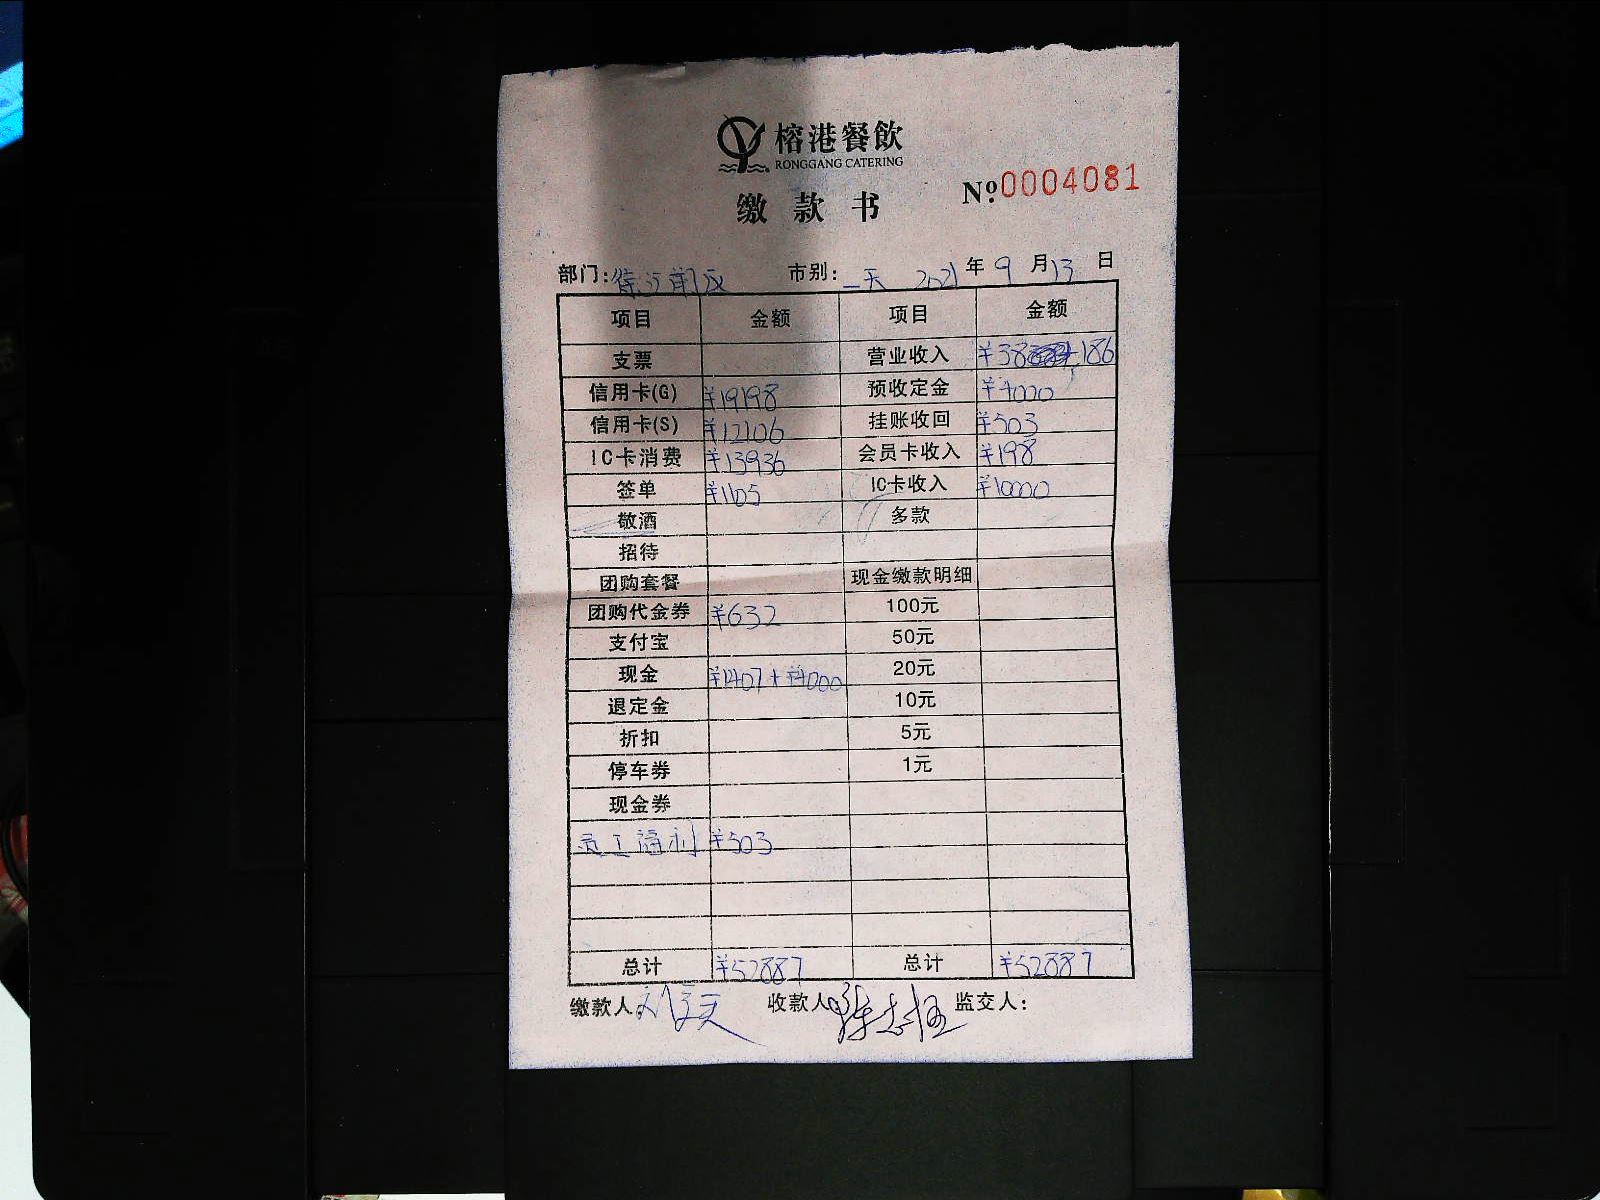 榕港餐飲
RONGGANG CATERING
No.0004081
缴款书
部门: 市别: 一天 2021年9月13日
项目 金额 项目 金额
支票 营业收入 ¥38186
信用卡(G) ¥19198 预收定金 ¥4000
信用卡(S) ¥12106 挂账收回 ¥503
IC卡消费 ¥13936 会员卡收入 ¥198
签单 ¥1105 IC卡收入 ¥10000
敬酒 多款
招待
团购套餐 现金缴款明细
团购代金券 ¥632 100元
支付宝 50元
现金 ¥1407+¥4000 20元
退定金 10元
折扣 5元
停车券 1元
现金券
员工福利 ¥503
总计 ¥52887 总计 ¥52887
缴款人: 收款人: 监交人: